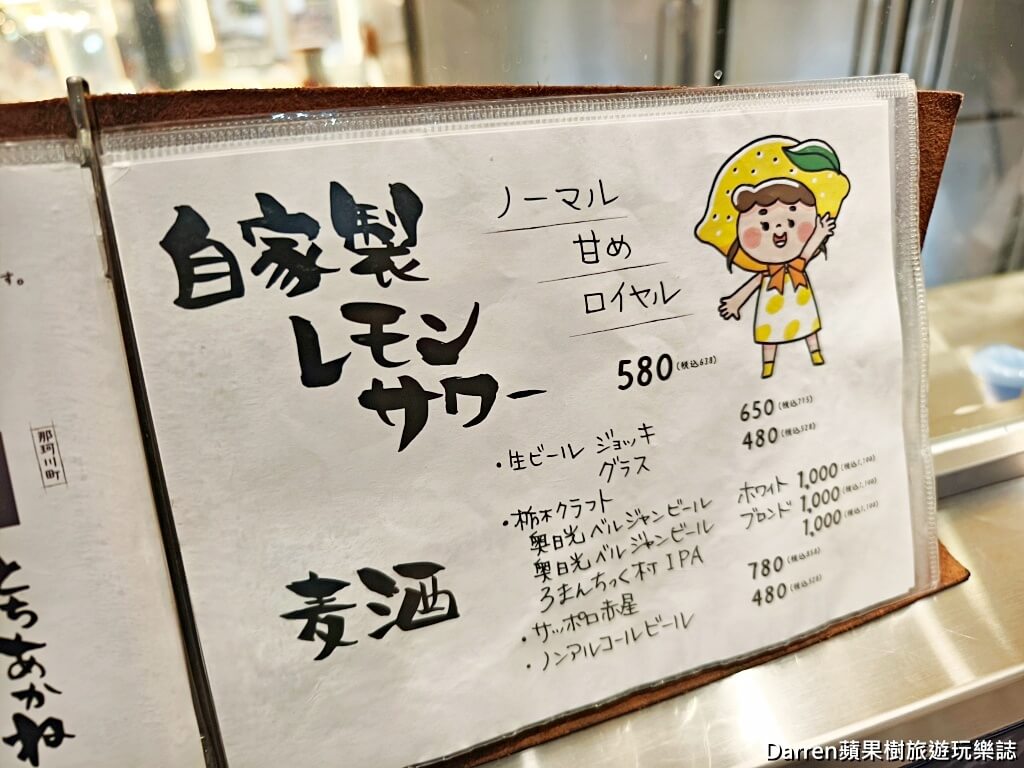 自家製
レモン
サワー
ノーマル
甘め
ロイヤル
580 (税込638)
・生ビール ジョッキ 650 (税込715)
グラス 480 (税込528)
麦酒
・栃木クラフト
奥日光ベルジャンビール ホワイト 1,000 (税込1,100)
奥日光ベルジャンビール ブロンド 1,000 (税込1,100)
ろまんちっく村 IPA 1,000 (税込1,100)
・サッポロ赤星 780 (税込858)
・ノンアルコールビール 480 (税込528)
す。
那珂川町
とちあかね
Darren蘋果樹旅遊玩樂誌